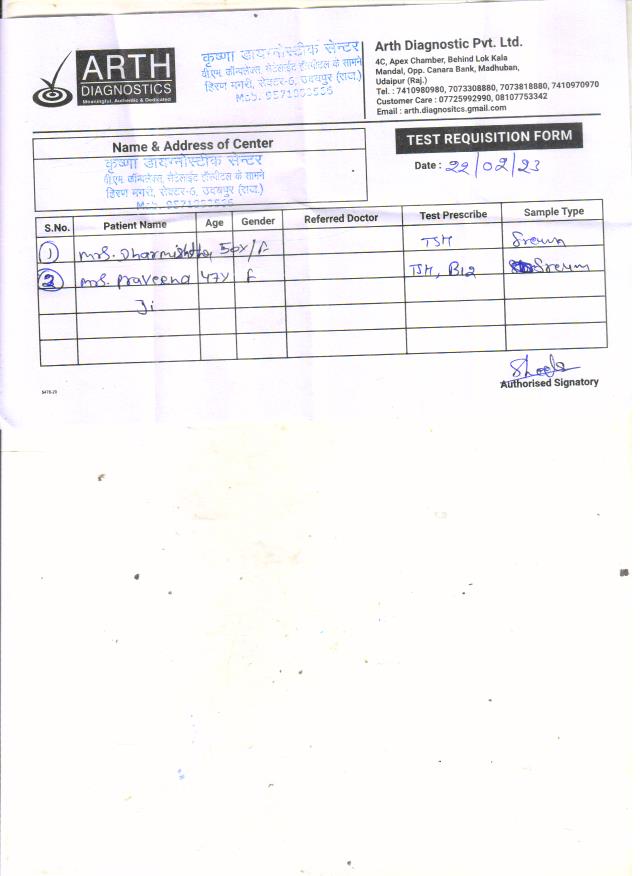 ARTH
DIAGNOSTICS
Meaningful, Authentic & Dedicated
कृष्णा डायग्नोस्टीक सेन्टर
पी.एम. कॉम्पलेक्स, सेटेलाईट हॉस्पीटल के सामने
हिरण मगरी, सेक्टर-6, उदयपुर (राज.)
Arth Diagnostic Pvt. Ltd.
4C, Apex Chamber, Behind Lok Kala
Mandal, Opp. Canara Bank, Madhuban,
Udaipur (Raj.)
Tel. : 7410980980, 7073308880, 7073818880, 7410970970
Customer Care : 07725992990, 08107753342
Email : arth.diagnositcs.gmail.com
Name & Address of Center
कृष्णा डायग्नोस्टीक सेन्टर
पी.एम. कॉम्पलेक्स, सेटेलाईट हॉस्पीटल के सामने
हिरण मगरी, सेक्टर-6, उदयपुर (राज.)
TEST REQUISITION FORM
Date : 22/02/23
S.No. Patient Name Age Gender Referred Doctor Test Prescribe Sample Type
1 Mrs. Dharmishtha 50Y/F TSH Sreum
2 Mrs. Praveena 47Y F TSH, B12 Sreum
Ji
Authorised Signatory